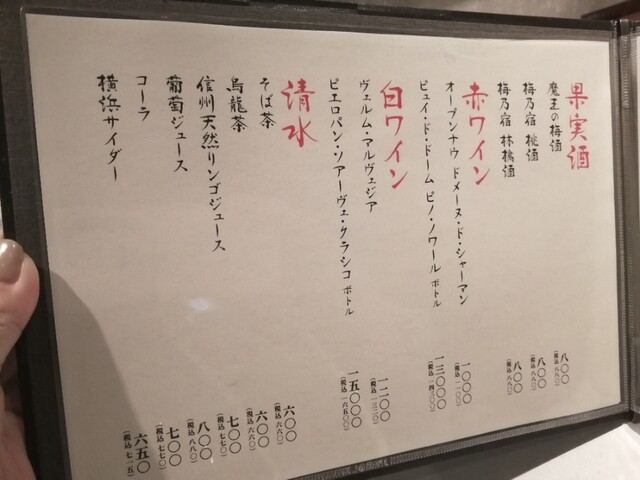 果実酒
魔王の梅酒 八〇〇 (税込 八八〇)
梅乃宿 桃酒 八〇〇 (税込 八八〇)
梅乃宿 林檎酒 八〇〇 (税込 八八〇)
赤ワイン
オープンナウ ドメーヌ・ド・シャーマン 一〇〇〇 (税込 一一〇〇)
ピュイ・ド・ドーム ピノ・ノワール ボトル 一三〇〇〇 (税込 一四三〇〇)
白ワイン
ヴェルム・アルヴェジア 一二〇〇 (税込 一三二〇)
ピエロパン・ソアーヴェ・クラシコ ボトル 一五〇〇〇 (税込 一六五〇〇)
清水
そば茶 六〇〇 (税込 六六〇)
烏龍茶 六〇〇 (税込 六六〇)
信州 天然リンゴジュース 七〇〇 (税込 七七〇)
葡萄ジュース 八〇〇 (税込 八八〇)
コーラ 七〇〇 (税込 七七〇)
横浜サイダー 六五〇 (税込 七一五)